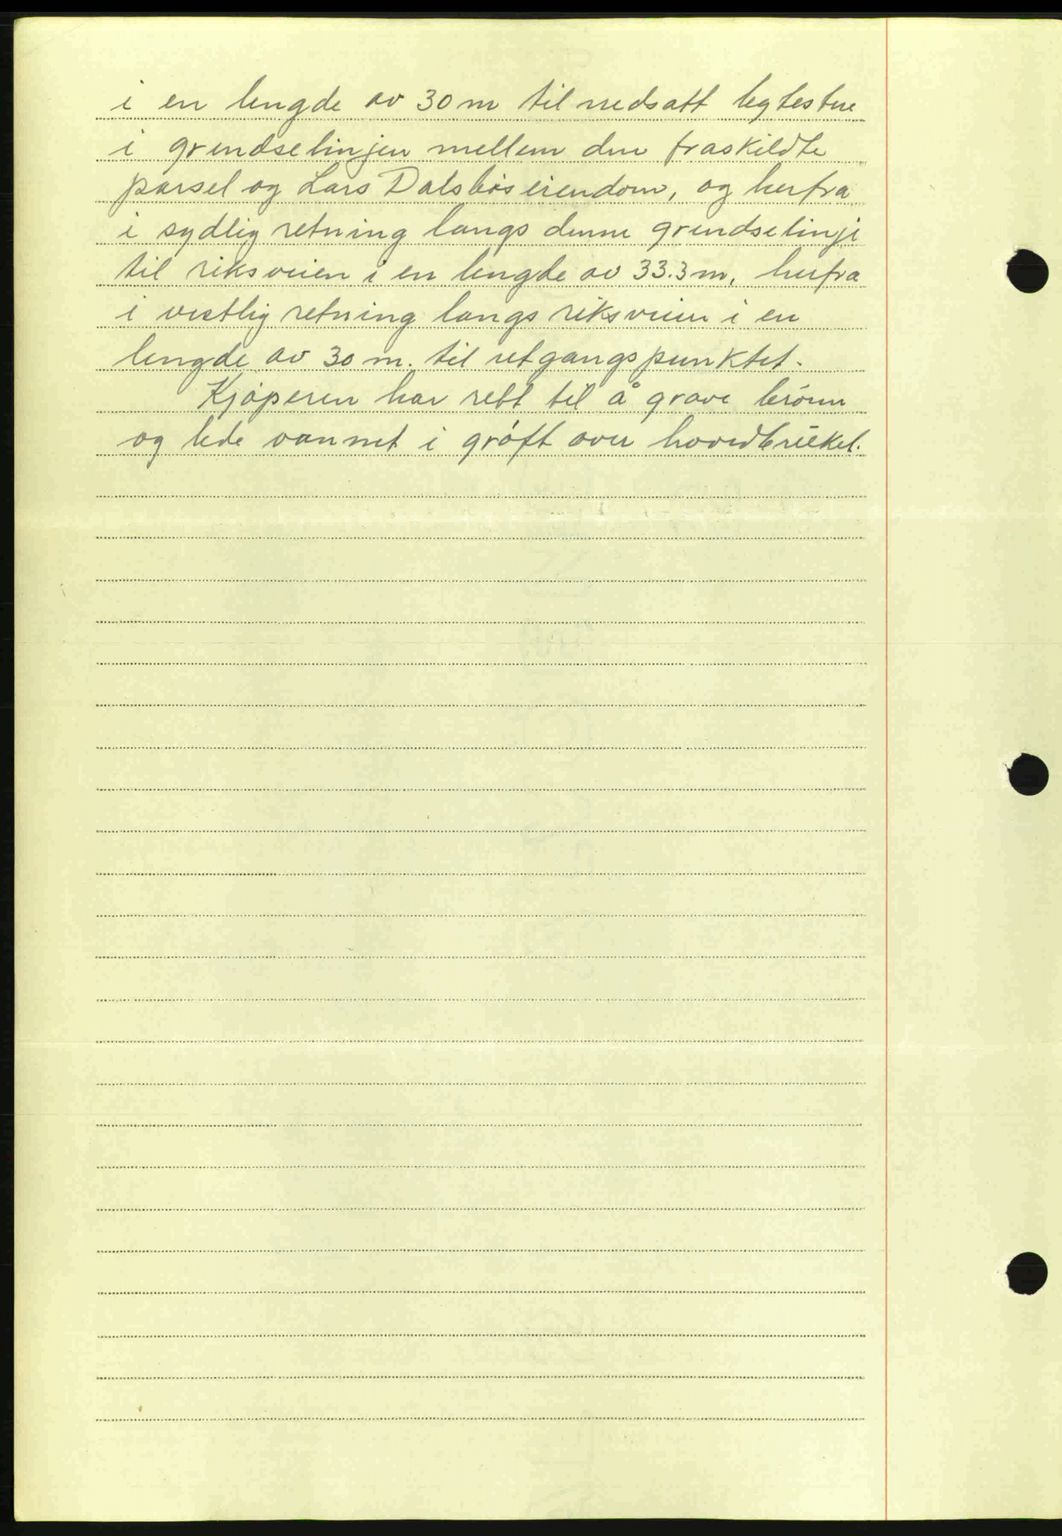 i en lengde av 30 m til nedsatt legtestue
i grendselinjen mellem den fraskildte
parsel og Lars Dalsbøs eiendom, og herfra
i sydlig retning langs denne grendselinje
til riksveien i en lengde av 33.3 m, herfra
i vestlig retning langs riksveien i en
lengde av 30 m. til utgangspunktet.
Kjøperen har rett til å grave brønn
og lede vannet i grøft over hovedbruket.